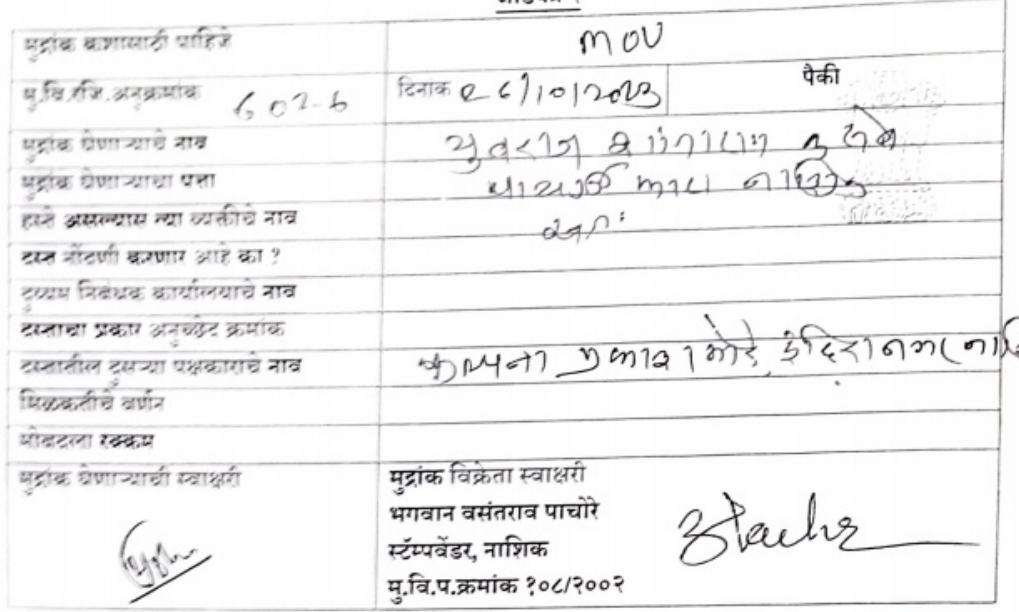 मुद्रांक कशासाठी पाहिजे MOU
मु.वि.रजि.अनुक्रमांक 602-6 दिनांक 26/10/2023 पैकी
मुद्रांक घेणाऱ्याचे नाव युवराज
मुद्रांक घेणाऱ्याचा पत्ता पाथर्डी नाशिक
हस्ते असल्यास त्या व्यक्तीचे नाव
दस्त नोंदणी करणार आहे का ?
दुय्यम निबंधक कार्यालयाचे नाव
दस्ताचा प्रकार अनुच्छेद क्रमांक
दस्तातील दुसऱ्या पक्षकाराचे नाव कल्पना प्रकाश मोरे, इंदिरानगर
मिळकतीचे वर्णन
मोबदला रक्कम
मुद्रांक घेणाऱ्याची स्वाक्षरी मुद्रांक विक्रेता स्वाक्षरी
भगवान वसंतराव पाचोरे
स्टॅम्पवेंडर, नाशिक
मु.वि.प.क्रमांक १०८/२००२